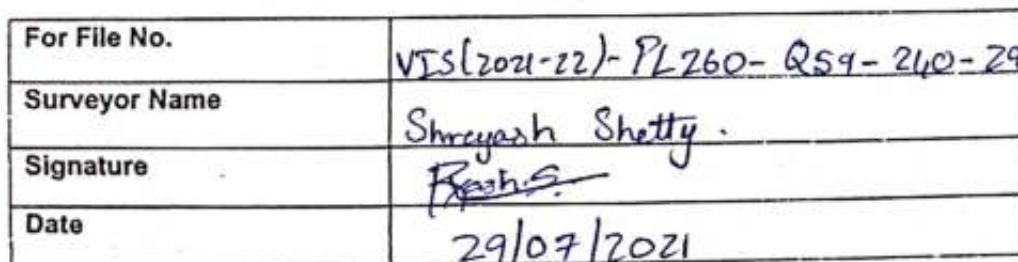 For File No. VIS(2021-22)-PL260-Q59-240-29
Surveyor Name Shreyash Shetty.
Signature
Date 29/07/2021